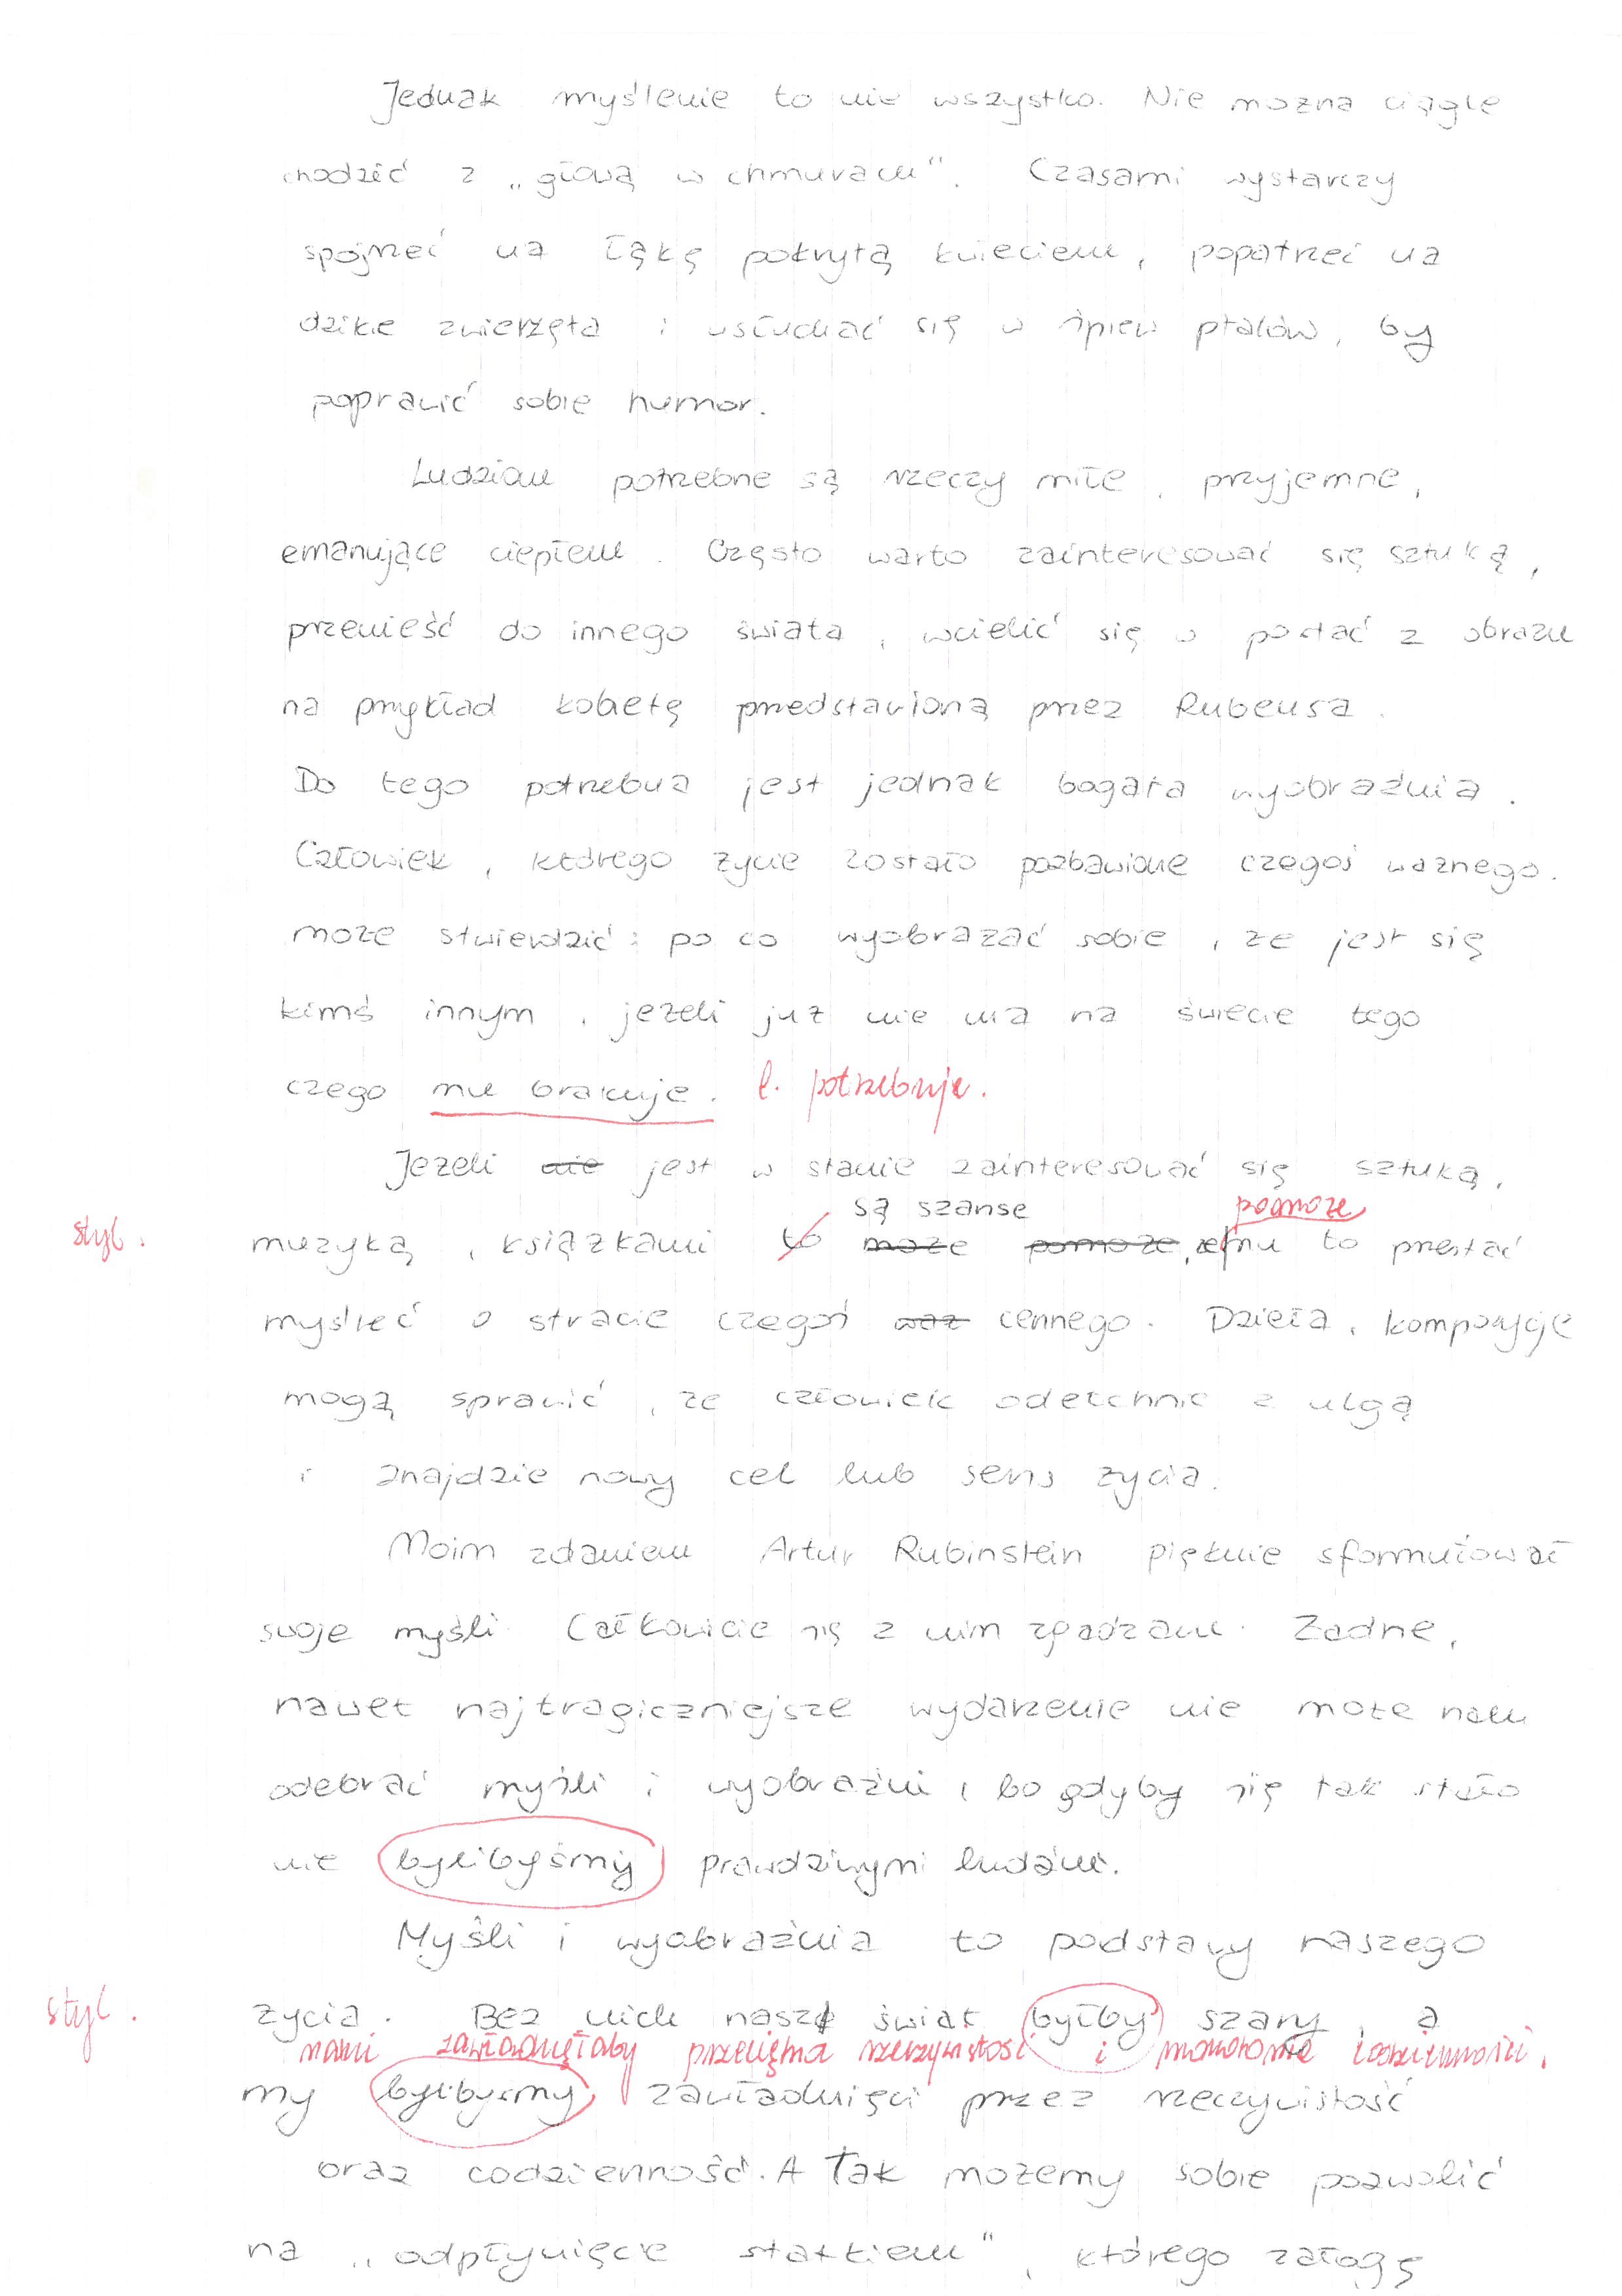 Jednak myślenie to nie wszystko. Nie można ciągle
chodzić z „głową w chmurach”. Czasami wystarczy
spojrzeć na łąkę pokrytą kwieciem, popatrzeć na
dzikie zwierzęta i wsłuchać się w śpiew ptaków, by
poprawić sobie humor.
Ludziom potrzebne są rzeczy miłe, przyjemne,
emanujące ciepłem. Często warto zainteresować się sztuką,
przenieść do innego świata, wcielić się w postać z obrazu
na przykład kobietę przedstawioną przez Rubensa.
Do tego potrzebna jest jednak bogata wyobraźnia.
Człowiek, którego życie zostało pozbawione czegoś ważnego.
może stwierdzić: po co wyobrażać sobie, że jest się
kimś innym, jeżeli już nie ma na świecie tego
czego mu brakuje. l. potrzebuje.
Jeżeli nie jest w stanie zainteresować się sztuką,
są szanse pomoże
styl. muzyką, książkami to może pomoże, że mu to przestać
myśleć o stracie czegoś waż cennego. Dzieła, kompozycje
mogą sprawić, że człowiek odetchnie z ulgą
i znajdzie nowy cel lub sens życia.
Moim zdaniem Artur Rubinstein pięknie sformułował
swoje myśli. Całkowicie się z nim zgadzam. Żadne,
nawet najtragiczniejsze wydarzenie nie może nam
odebrać myśli i wyobraźni, bo gdyby się tak stało
nie bylibyśmy prawdziwymi ludźmi.
Myśli i wyobraźnia to podstawy naszego
styl. życia. Bez nich nasz świat byłby szary, a
nami zawładnęłaby przeciętna rzeczywistość i monotonia codzienności.
my bylibyśmy zawładnięci przez rzeczywistość
oraz codzienność. A Tak możemy sobie pozwolić
na „odpłynięcie statkiem”, którego załogę